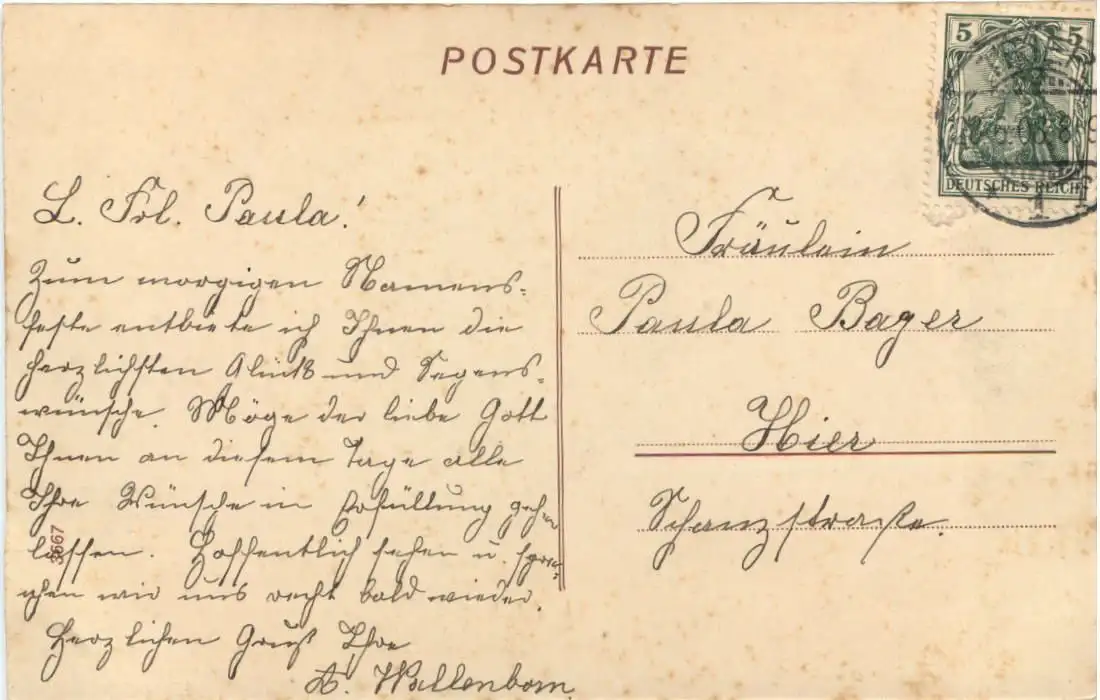 POSTKARTE
5 5
DEUTSCHES REICH
L. Frl. Paula!
Zum morgigen Namens-
feste entbiete ich Ihnen die
herzlichsten Glück- und Segens-
wünsche. Möge der liebe Gott
Ihnen an diesem Tage alle
Ihre Wünsche in Erfüllung gehen
lassen. Hoffentlich sehen u. spre-
chen wir uns recht bald wieder.
Herzlichen Gruß Ihre
A. Wallenborn.
3667
Fräulein
Paula Bager
Hier
Schanzstraße.